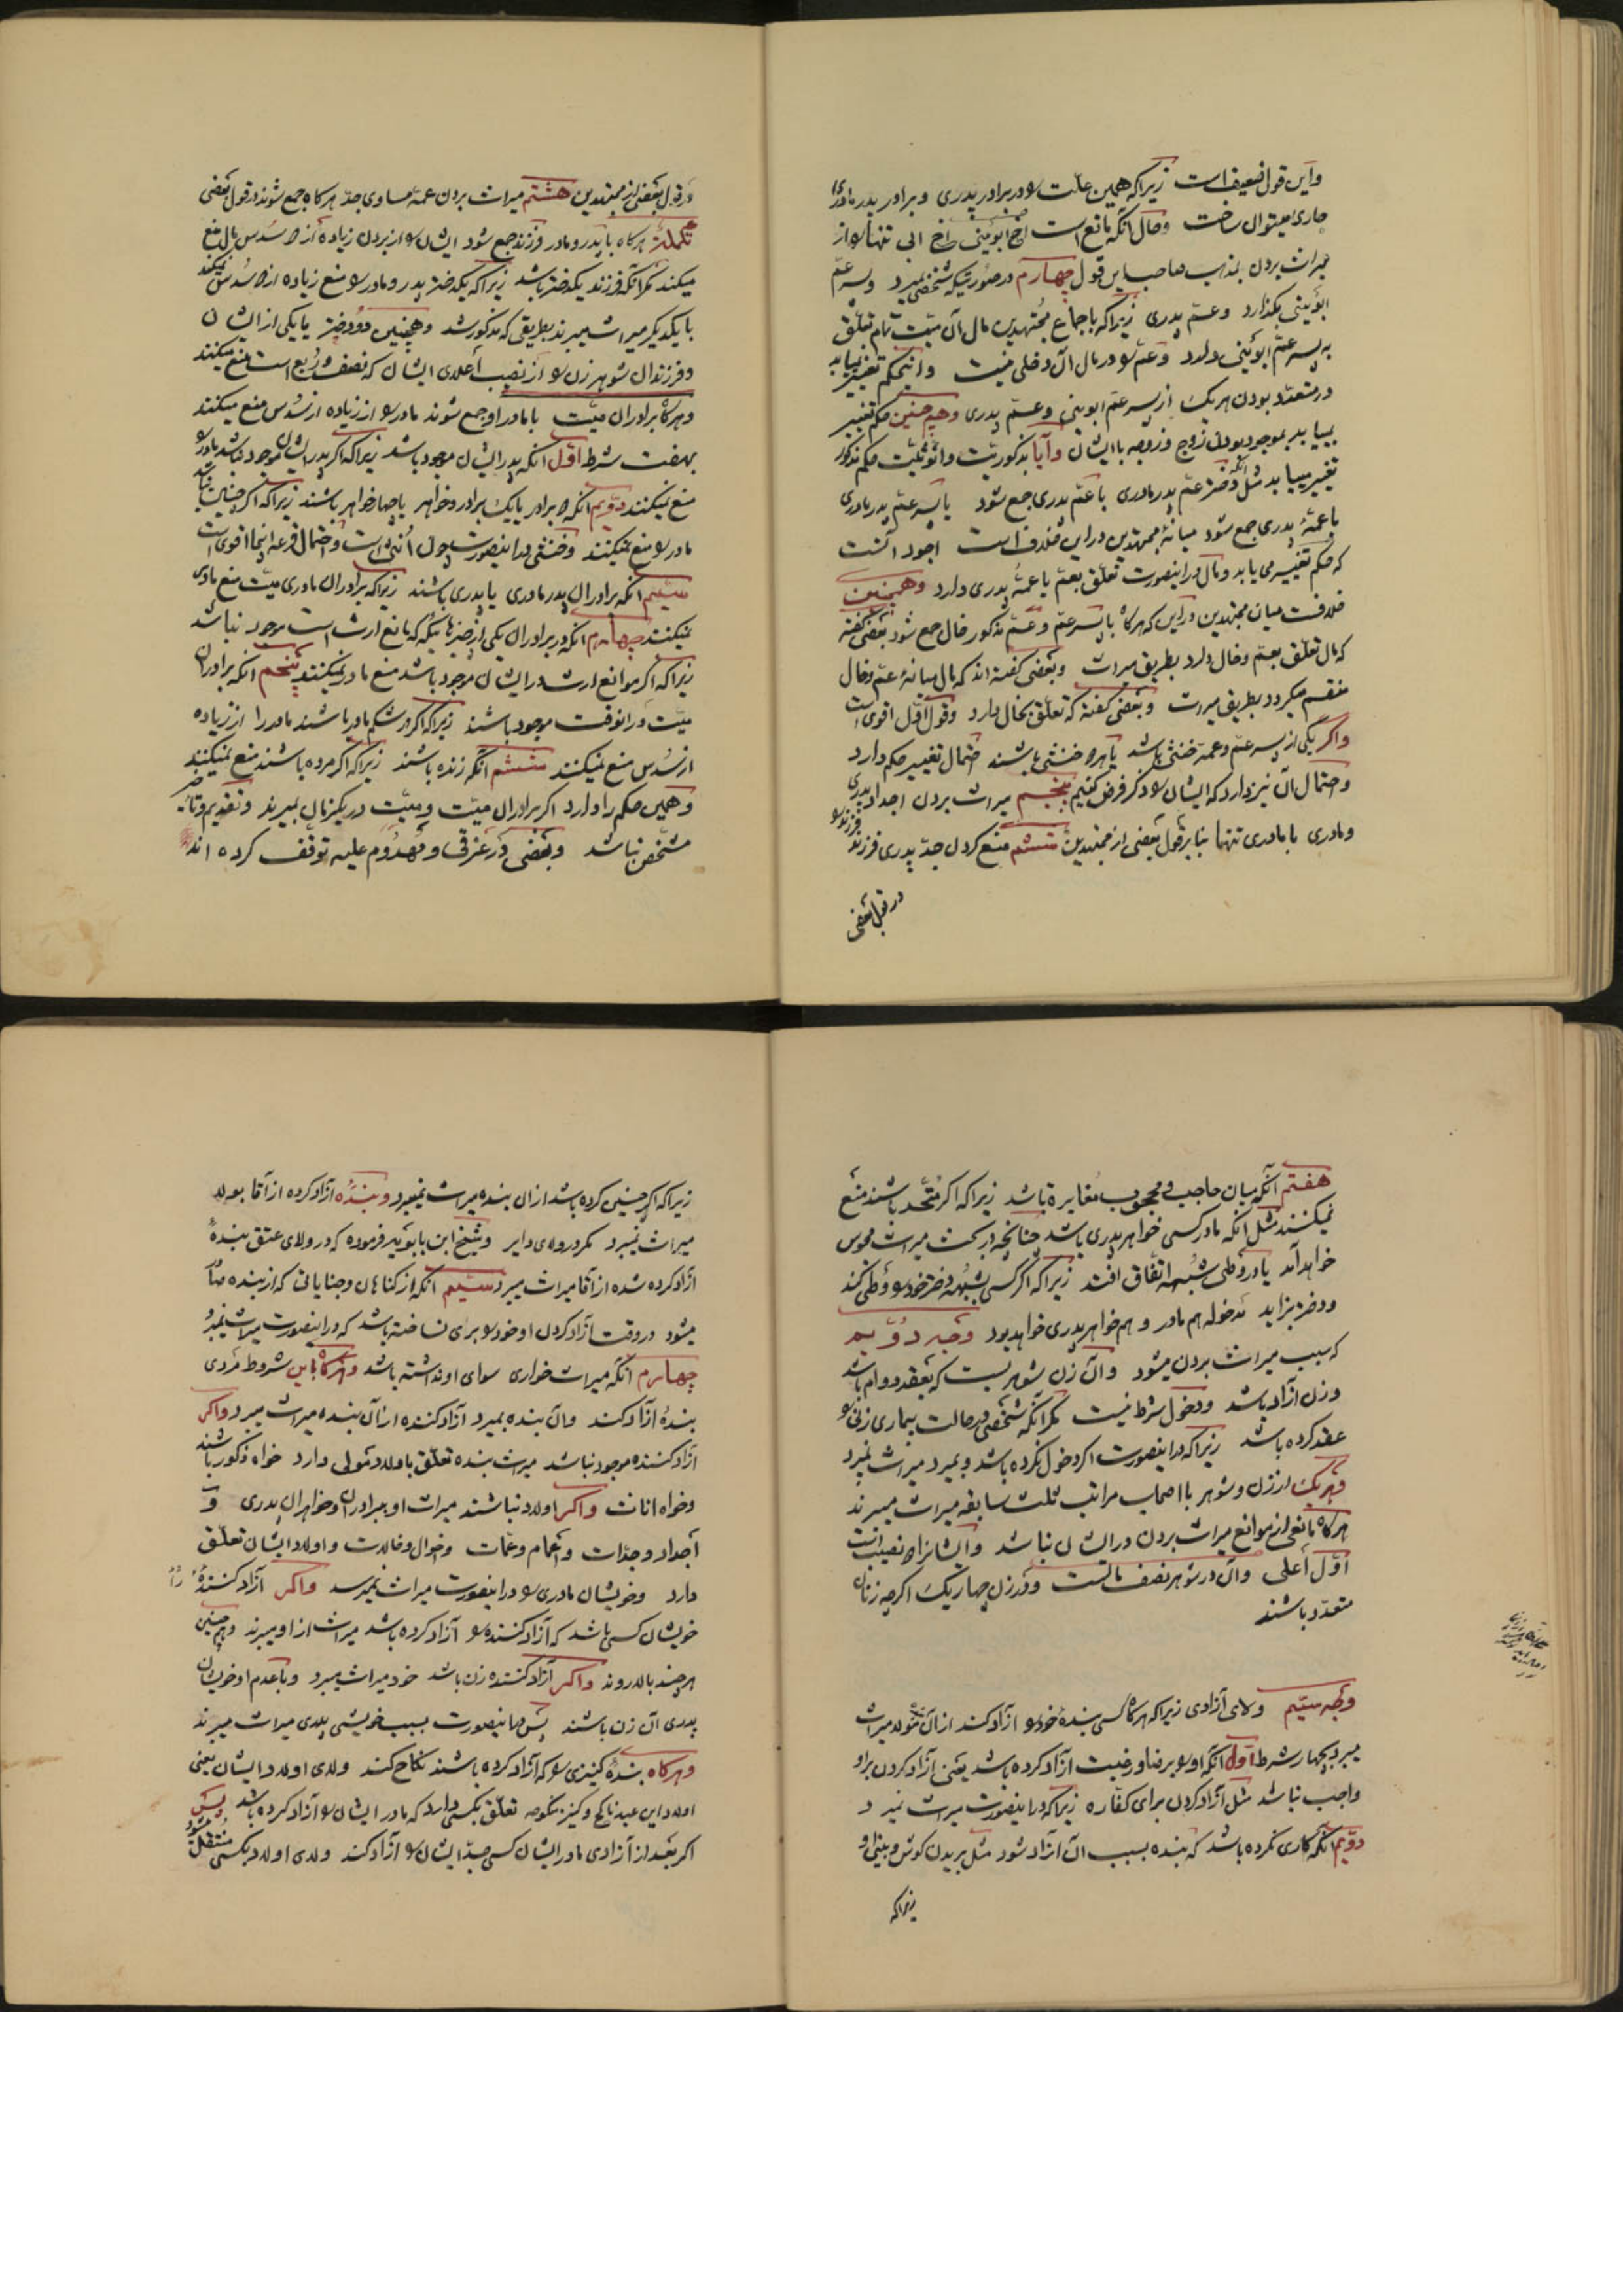 واین قول ضعیف است زیرا که همین علّت را در برادر پدری و برادر پدر مادری
جاری میتوان ساخت و حال آنکه مانع است اخ ابوینی اخ ابی تنها را از
میراث بردن بمذهب صاحب این قول چهارم در صورتیکه شخصی بمیرد و پسر عمّ
ابوینی بگذارد و عمّ پدری زیرا که باجماع مجتهدین مال آن میّت تمام تعلّق
به پسر عمّ ابوینی دارد و عمّ را در مال آن دخلی نیست و اینحکم تغییر نمییابد
در متعدّد بودن هر یک از پسر عمّ ابوینی و عمّ پدری و همچنین حکم تغییر
نمییابد بموجود بودن زوج و زوجه با ایشان و آیا بذکوریّت و انوثیّت حکم مذکور
تغییر مییابد مثل آنکه دختر عمّ پدر مادری با عمّ پدری جمع شود یا پسر عمّ پدر مادری
با عمّهٔ پدری جمع شود میانهٔ مجتهدین در این خلاف است اجود آنست
که حکم تغییر می یابد و مال در اینصورت تعلّق بعمّ یا عمّهٔ پدری دارد و همچنین
خلافست میان مجتهدین در این که هرگاه با پسر عمّ و عمّ مذکور خال جمع شود بعضی گفته
که مال تعلّق بعمّ و خال دارد بطریق میراث و بعضی گفته اند که مال میانهٔ عمّ و خال
منقسم میگردد بطریق میراث و بعضی گفته که تعلّق بخال دارد و قول اوّل اقوی است
و اگر یکی از پسر عمّ و عمّه خنثی باشد یا هر دو خنثی باشند احتمال تغییر حکم دارد
و احتمال آن نیز دارد که ایشان را ذکر فرض کنیم پنجم میراث بردن اجداد پدری
و مادری با مادری تنها بنا بر قول بعضی از مجتهدین ششم منع کردن جدّ پدری فرزند فرزند را
در قول بعضی
در قول بعضی از مجتهدین هشتم میراث بردن عمّه مساوی جدّ هرگاه جمع شوند در قول بعضی
تکمله هرگاه با پدر و مادر فرزند جمع شود ایشان را از بردن زیاده از سُدس مال منع
میکند مگر آنکه فرزند یکدختر باشد زیرا که یکدختر پدر و مادر را منع زیاده از سُدس نمیکند
با یکدیگر میراث میبرند بطریقی که مذکور شد و همچنین دو دختر با یکی از ایشان
و فرزندان شوهر زن را از نصیب اعلای ایشان که نصف و رُبع است منع میکنند
و هرگاه برادران میّت با مادر او جمع شوند مادر را از زیاده از سُدس منع میکنند
بهفت شرط اوّل آنکه پدر ایشان موجود باشد زیرا که اگر پدر ایشان موجود نباشد مادر را
منع نمیکنند دوّیم آنکه دو برادر یا یک برادر و دو خواهر یا چهار خواهر باشند زیرا که اگر چنین نباشد
مادر را منع نمیکنند و خنثی در اینصورت چون اُنثی است و احتمال قرعه اینجا اقوی است
سیّم آنکه برادران پدر مادری یا پدری باشند زیرا که برادران مادری میّت منع مادر
نمیکنند چهارم آنکه در برادران یکی از چیزهائیکه که مانع ارث است موجود نباشد
زیرا که اگر موانع ارث در ایشان موجود باشد منع مادر نمیکنند پنجم آنکه برادران
میّت در آنوقت موجود باشند زیرا که اگر در شکم مادر باشند مادر را از زیاده
از سُدس منع نمیکنند ششم آنکه زنده باشند زیرا که اگر مرده باشند منع نمیکنند
و همین حکم را دارد اگر برادران میّت و میّت در یکزمان بمیرند و تقدیم و تأخیر
مشخّص نباشد و بعضی در غرقی و مهدوم علیه توقّف کرده اند
هفتم آنکه میان حاجب و محجوب مغایرة باشد زیرا که اگر متّحد باشند منع
نمیکنند مثل آنکه مادر کسی خواهر پدری باشد چنانچه در بحث میراث مجوس
خواهد آمد یا در وطی شبهه اتّفاق افتد زیرا که اگر کسی بشبهه دختر خود را وطی کند
و دختر بزاید مدخوله هم مادر و هم خواهر پدری خواهد بود وجه دوّیم
که سبب میراث بردن میشود و آن زن شوهریست که بعقد دوام باشد
و زن آزاد باشد و دخول شرط نیست مگر آنکه شخصی در حالت بیماری زنی را
عقد کرده باشد زیرا که در اینصورت اگر دخول نکرده باشد و بمیرد میراث نمیبرد
و هر یک از زن و شوهر با اصحاب مراتب ثلث سابقه میراث میبرند
هرگاه مانعی از موانع میراث بردن در ایشان نباشد و ایشانرا دو نصیب است
اوّل اعلی و آن در شوهر نصف مالست و در زن چهار یک اگرچه زنان
متعدّد باشند
وجه سیّم ولای آزادی زیرا که هرگاه کسی بندهٔ خود را آزاد کند از آن بنده میراث
میبرد بچهار شرط اوّل آنکه او را برضا و رغبت آزاد کرده باشد یعنی آزاد کردن بر او
واجب نباشد مثل آزاد کردن برای کفّاره زیرا که در اینصورت میراث نمیبرد
دوّیم آنکه کاری نکرده باشد که بنده بسبب آن آزاد شود مثل بریدن گوش و بینی او
زیرا که
زیرا که اگر چنین کرده باشد از آن بنده میراث نمیبرد و بندهٔ آزاد کرده از آقا بولا
میراث نمیبرد مگر در ولای دایر و شیخ ابن بابویه فرموده که در ولای عتق بندهٔ
آزاد کرده شده از آقا میراث میبرد سیّم آنکه از گناهان و جنایاتی که از بنده صادر
میشود در وقت آزاد کردن او خود را بری نساخته باشد که در اینصورت میراث نمیبرد
چهارم آنکه میراث خواری سوای او نداشته باشد و هرگاه باین شروط مردی
بندهٔ آزاد کند و آن بنده بمیرد آزاد کننده از آن بنده میراث میبرد و اگر
آزاد کننده موجود نباشد میراث بنده تعلّق باولاد مولی دارد خواه ذکور باشند
و خواه اناث و اگر اولاد نباشند میراث او ببرادران و خواهران پدری و
اجداد و جدّات و اعمام و عمّات و اخوال و خالات و اولاد ایشان تعلّق
دارد و خویشان مادری را در اینصورت میراث نمیرسد و اگر آزاد کنندهٔ
خویشان کسی باشد که آزاد کننده را آزاد کرده باشد میراث از او میبرند و همچنین
هر چند بالا روند و اگر آزاد کننده زن باشد خود میراث میبرد و با عدم او خویشان
پدری آن زن باشند پس در اینصورت بسبب خویشی پدری میراث میبرند
و هرگاه بندهٔ کنیزی را که آزاد کرده باشند نکاح کند ولای اولاد ایشان یعنی
اولاد این عبد ناکح و کنیز منکوحه تعلّق بکسی دارد که مادر ایشان را آزاد کرده باشد پس
اگر بعد از آزادی مادر ایشان کسی جدّ ایشان را آزاد کند ولای اولاد بکسی منتقل میشود